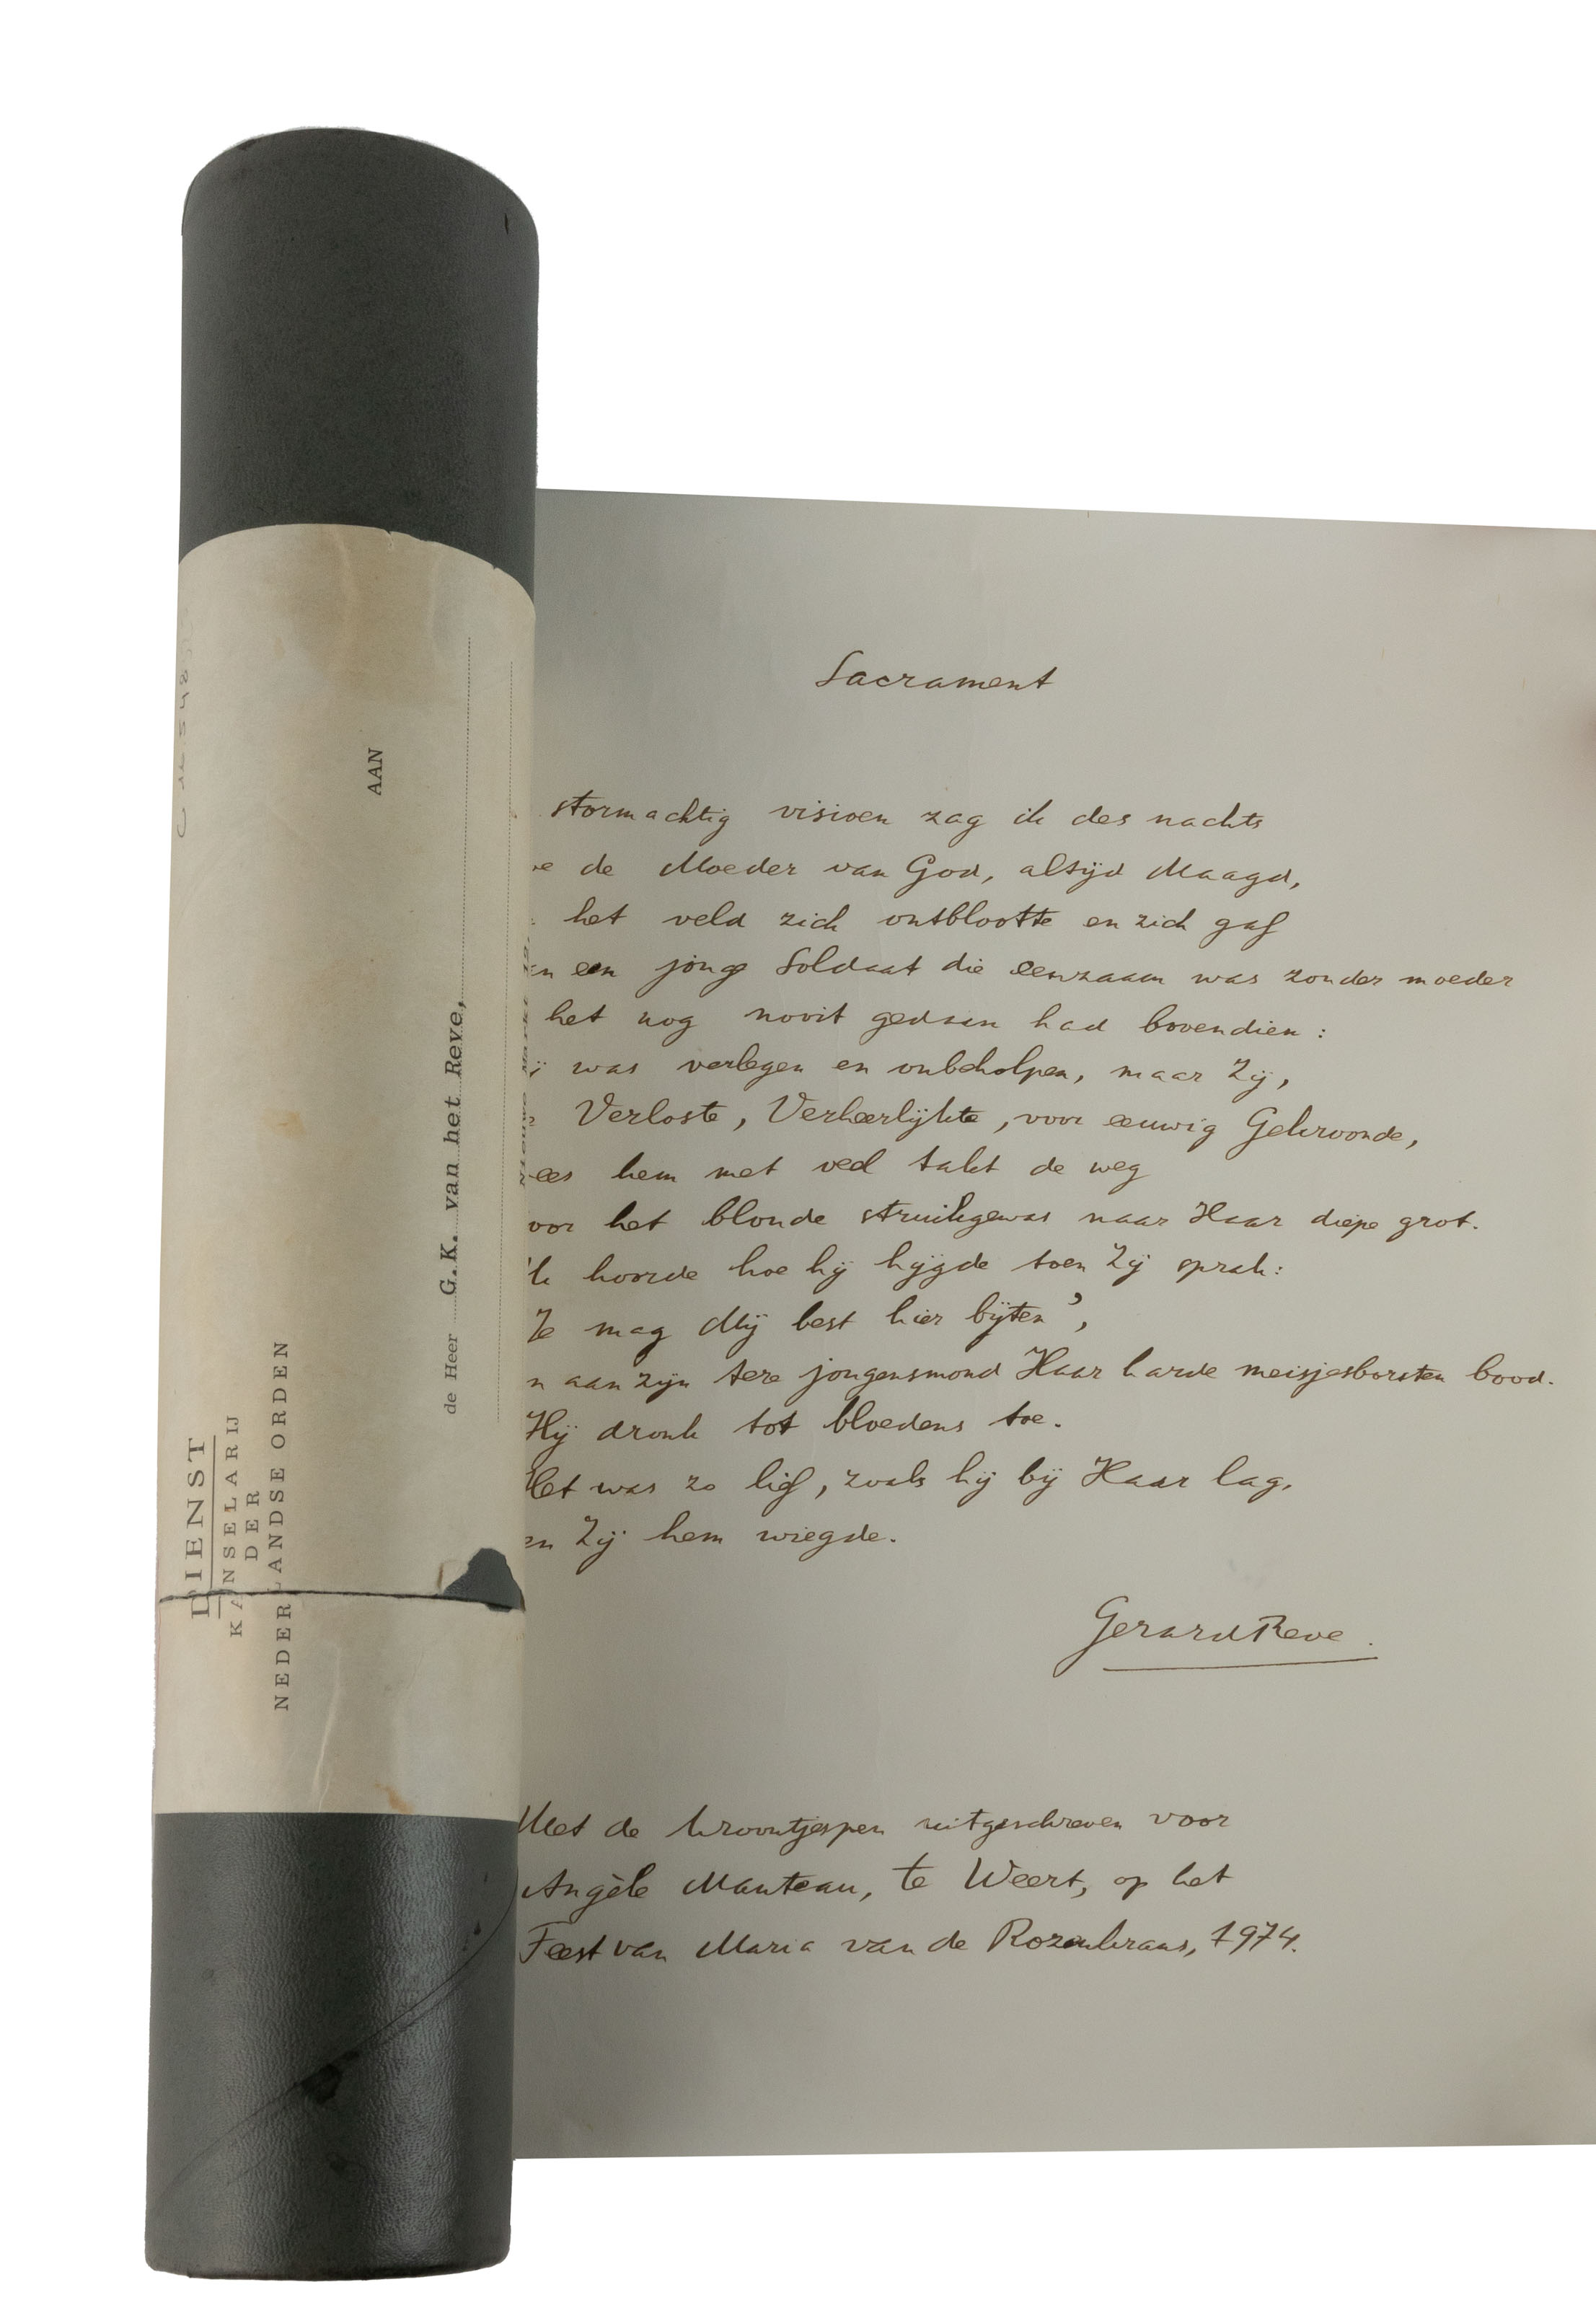 DIENST
KANSELARIJ
DER
NEDERLANDSE ORDEN
AAN
de Heer G.K. van het Reve,
Sacrament
stormachtig visioen zag ik des nachts
oe de Moeder van God, altijd Maagd,
het veld zich ontblootte en zich gaf
an een jonge Soldaat die eenzaam was zonder moeder
het nog nooit gedaan had bovendien:
ij was verlegen en onbeholpen, maar Zij,
Verloste, Verheerlijkte, voor eeuwig Gekroonde,
ees hem met veel takt de weg
oor het blonde struikgewas naar Haar diepe grot.
Ik hoorde hoe hij hijgde toen Zij sprak:
Je mag Mij best hier bijten',
n aan zijn tere jongensmond Haar harde meisjesborsten bood.
Hij dronk tot bloedens toe.
Het was zo lief, zoals hij bij Haar lag,
en Zij hem wiegde.
Gerard Reve.
Met de kroontjespen uitgeschreven voor
Angèle Manteau, te Weert, op het
Feest van Maria van de Rozenkrans, 1974.